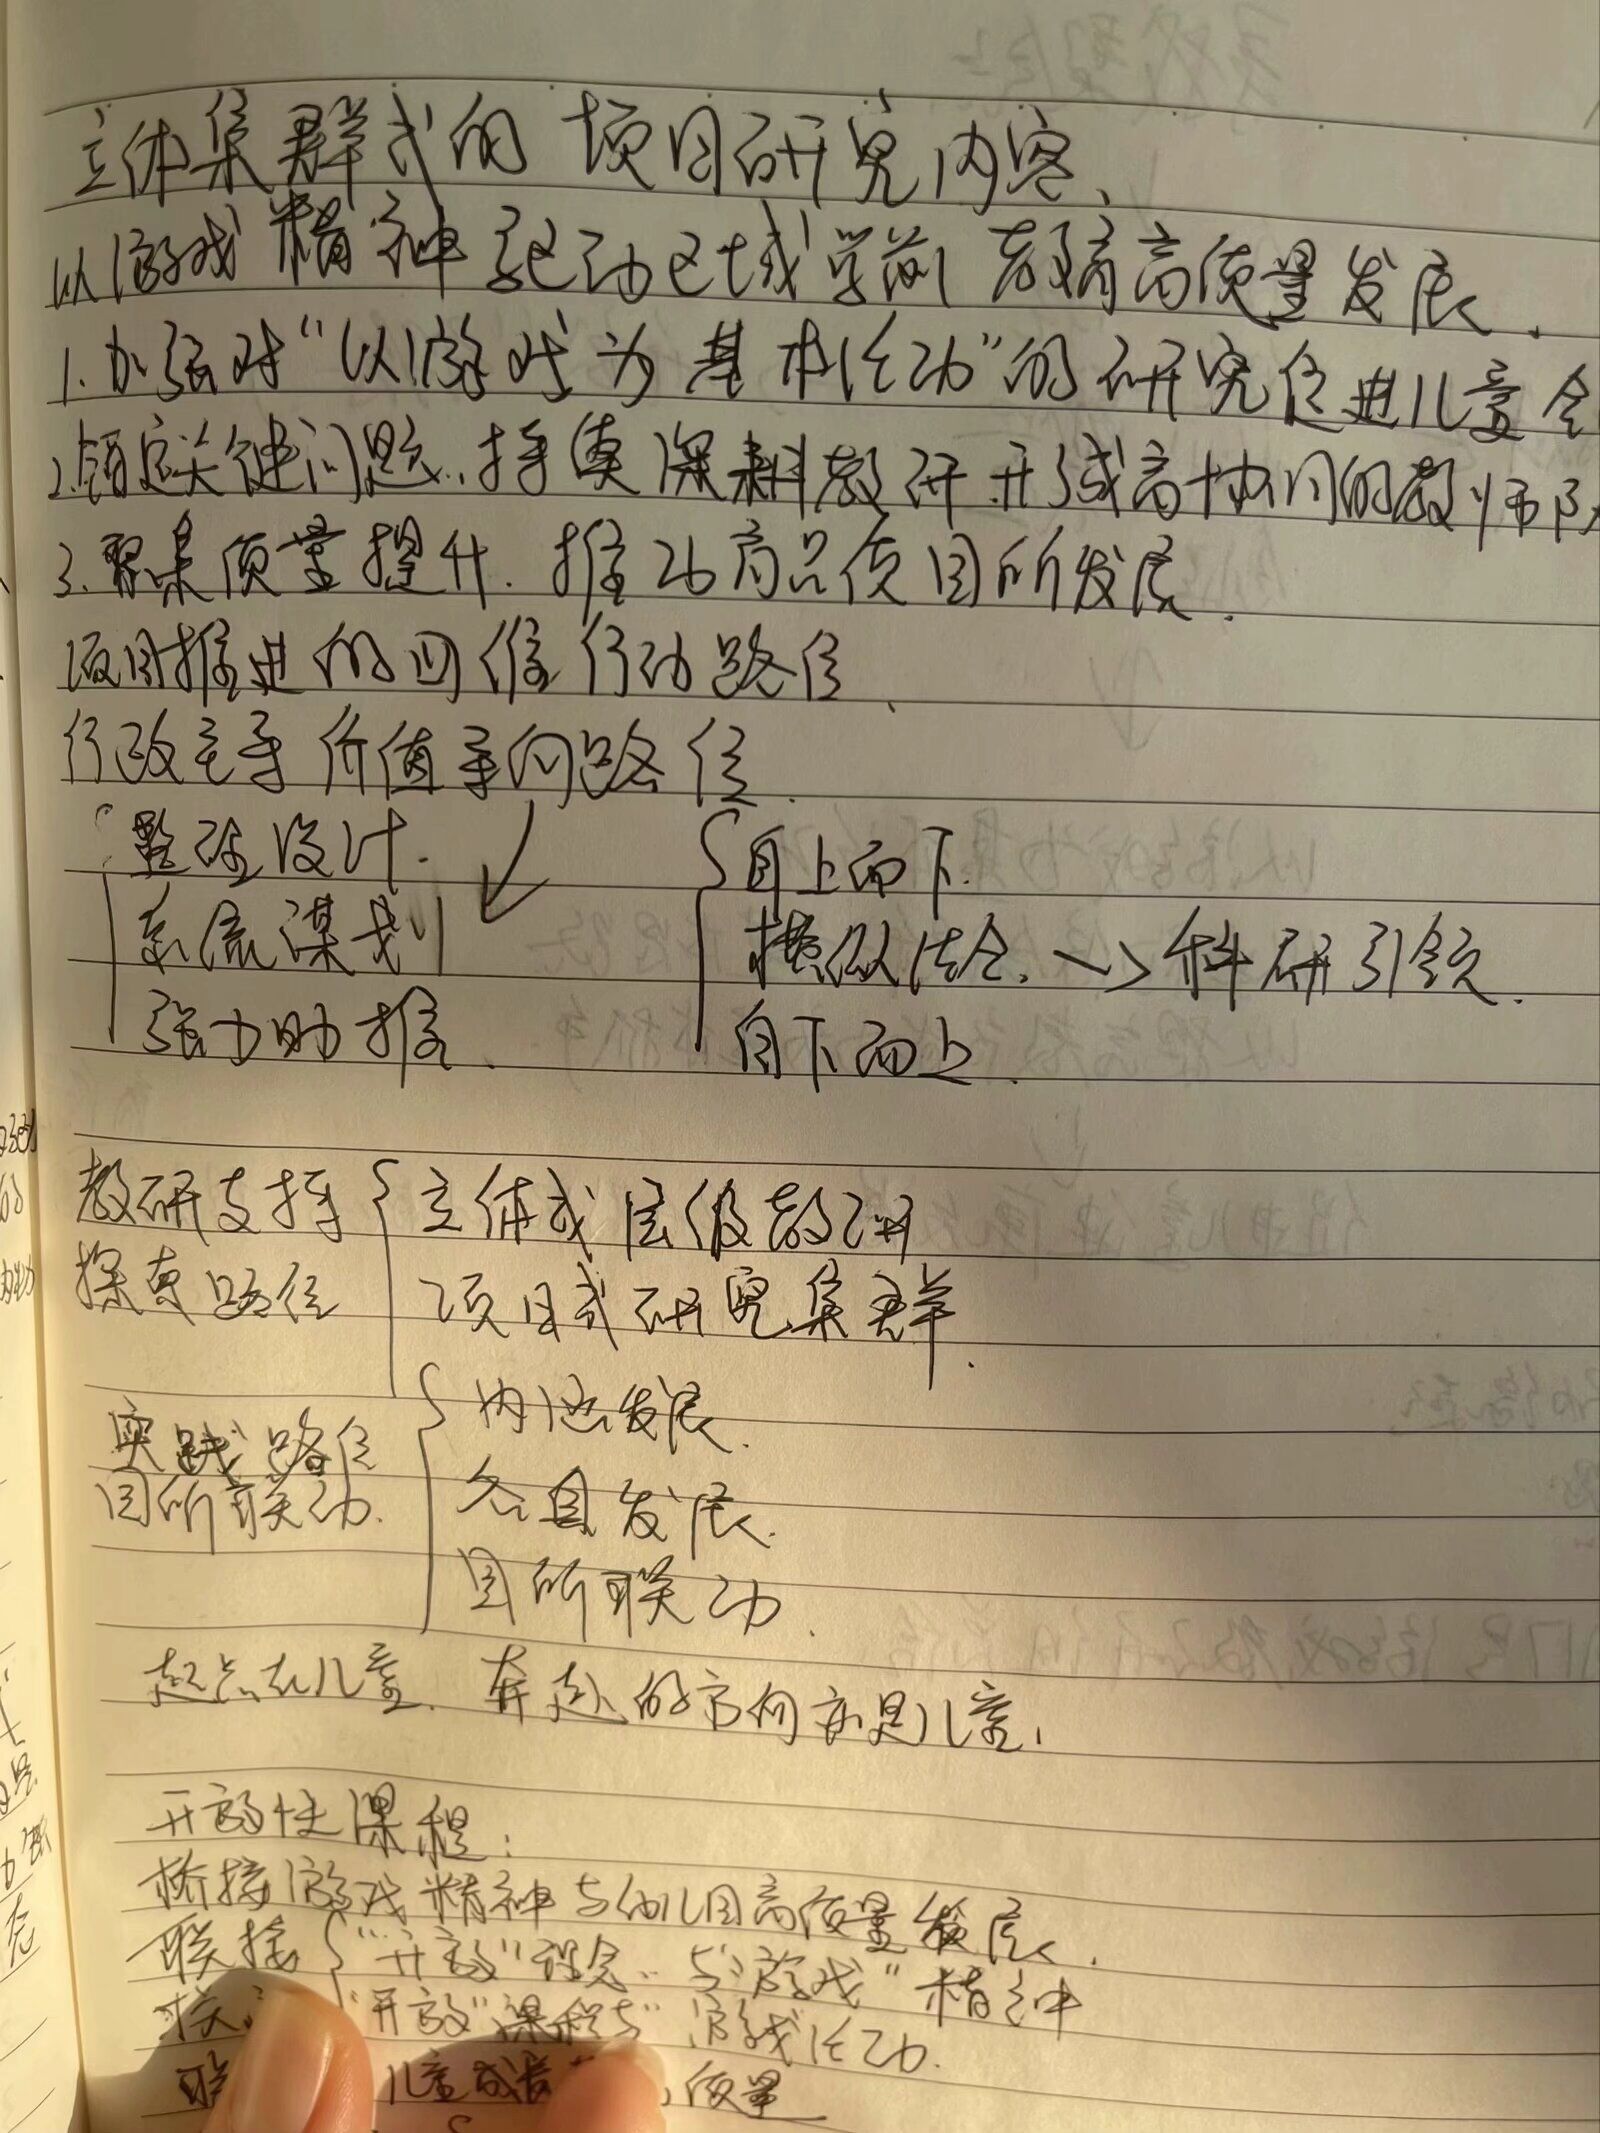 立体集群式的 项目研究内容、
以游戏精神驱动区域学前教育高质量发展.
1.加强对“以游戏为基本活动”的研究促进儿童全
2.锚定关键问题..持续深耕教研 形成高协同的教师队
3.聚集质量提升.推动高品质园所发展.
项目推进的四条行动路径、
行政主导 价值导向路径.
整体设计. 自上而下.
系统谋划 横纵结合. 科研引领.
强力助推. 自下而上.
教研支持 立体式层级教研
探索路径 项目式研究集群.
内涵发展.
实践路径
各自发展.
园所联动.
园所联动.
起点在儿童. 奔赴的方向亦是儿童,
开放性课程:
桥接游戏精神与幼儿园高质量发展.
联接 “开放”理念..与“游戏”精神
“开放”课程与“游戏活动.
联 儿童成长 质量